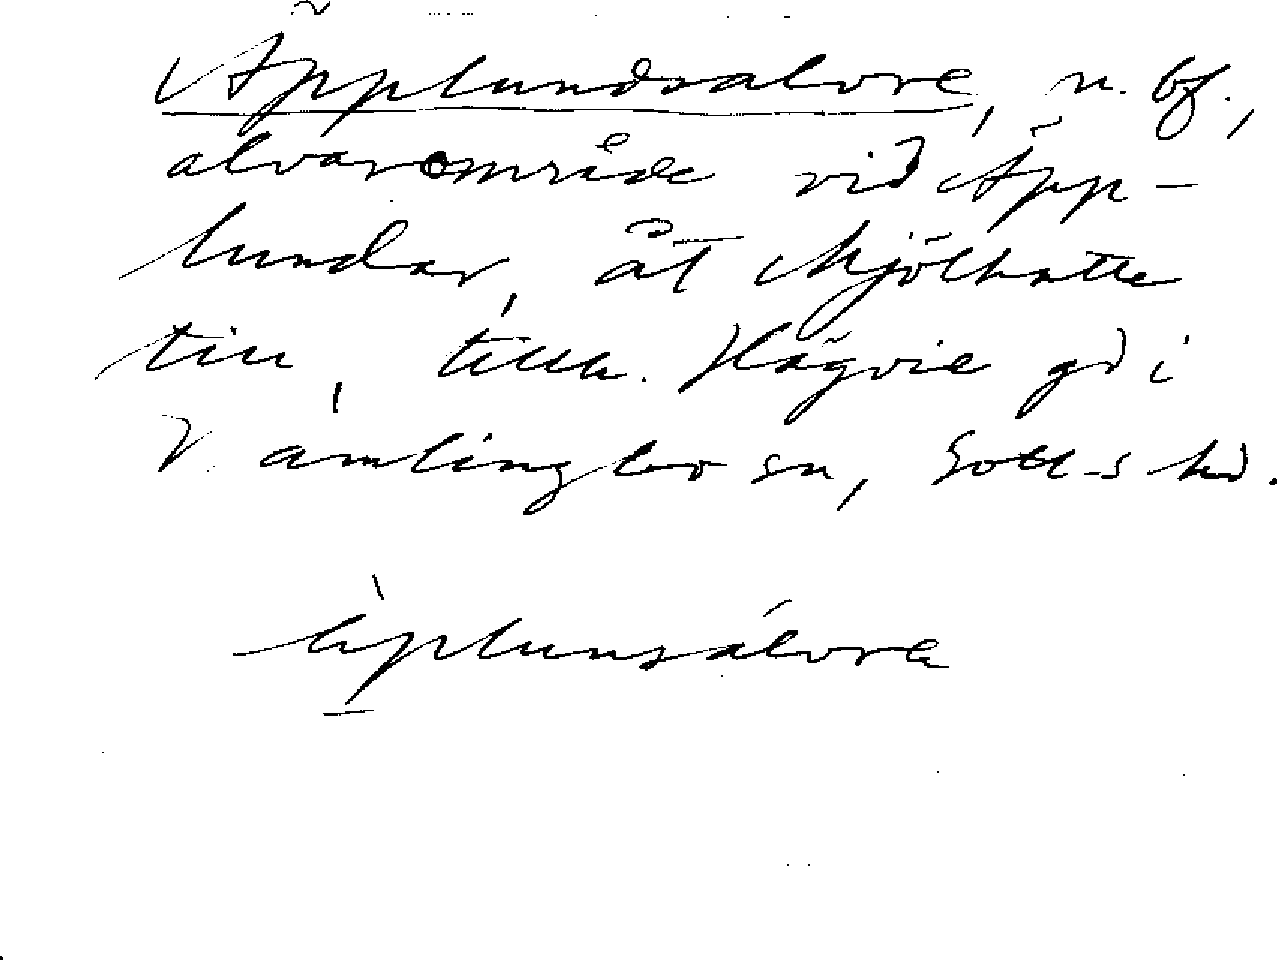 Äpplundsalvre, n. bf.,
alvarområde vid Äpp-
lundar, åt Mjölhatte
till, tillh. Hägvie gd i
Vamlingbo sn, Gotl-s hd.
äplunsálvrä